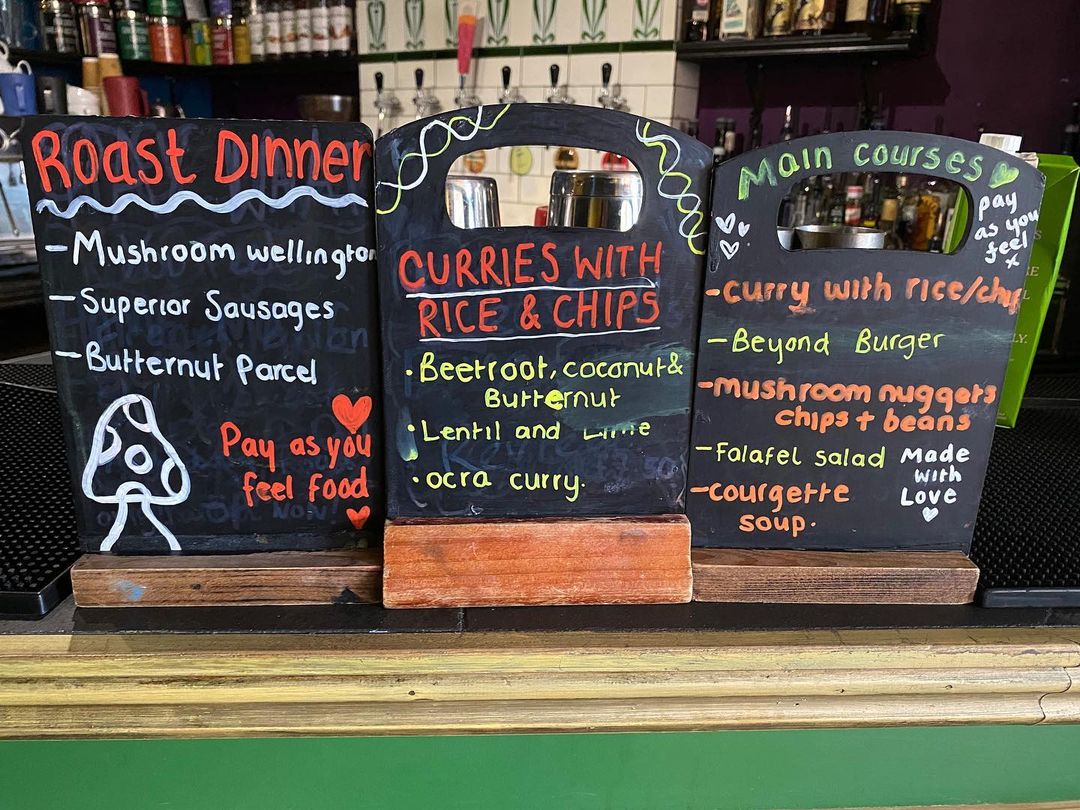 Roast Dinner
- Mushroom wellington
- Superior Sausages
- Butternut Parcel
Pay as you
feel food
CURRIES WITH
RICE & CHIPS
• Beetroot, coconut &
Butternut
• Lentil and Lime
• ocra curry.
Main courses
pay
as you
feel
x
- curry with rice/chips
- Beyond Burger
- Mushroom nuggets
chips + beans
- Falafel salad
- courgette
soup.
Made
with
Love